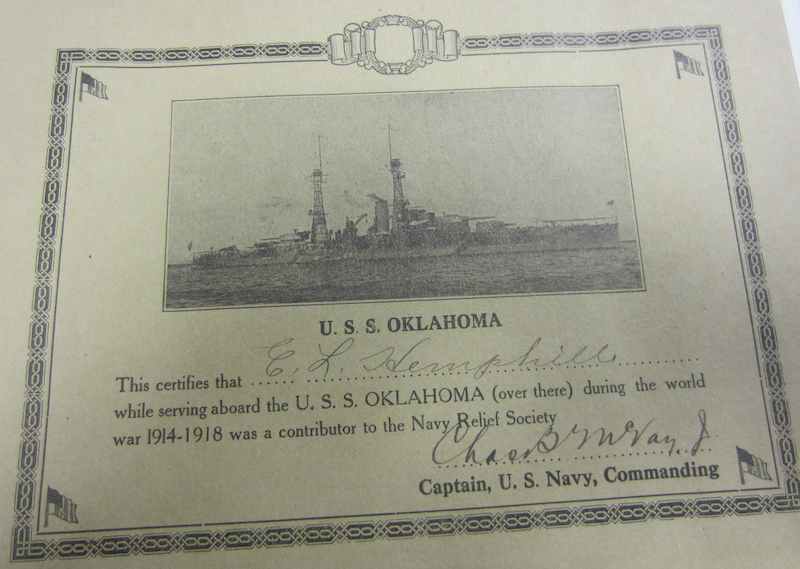 U. S. S. OKLAHOMA
This certifies that E. L. Hemphill
while serving aboard the U. S. S. OKLAHOMA (over there) during the world
war 1914-1918 was a contributor to the Navy Relief Society
Chas B McVay, Jr
Captain, U. S. Navy, Commanding